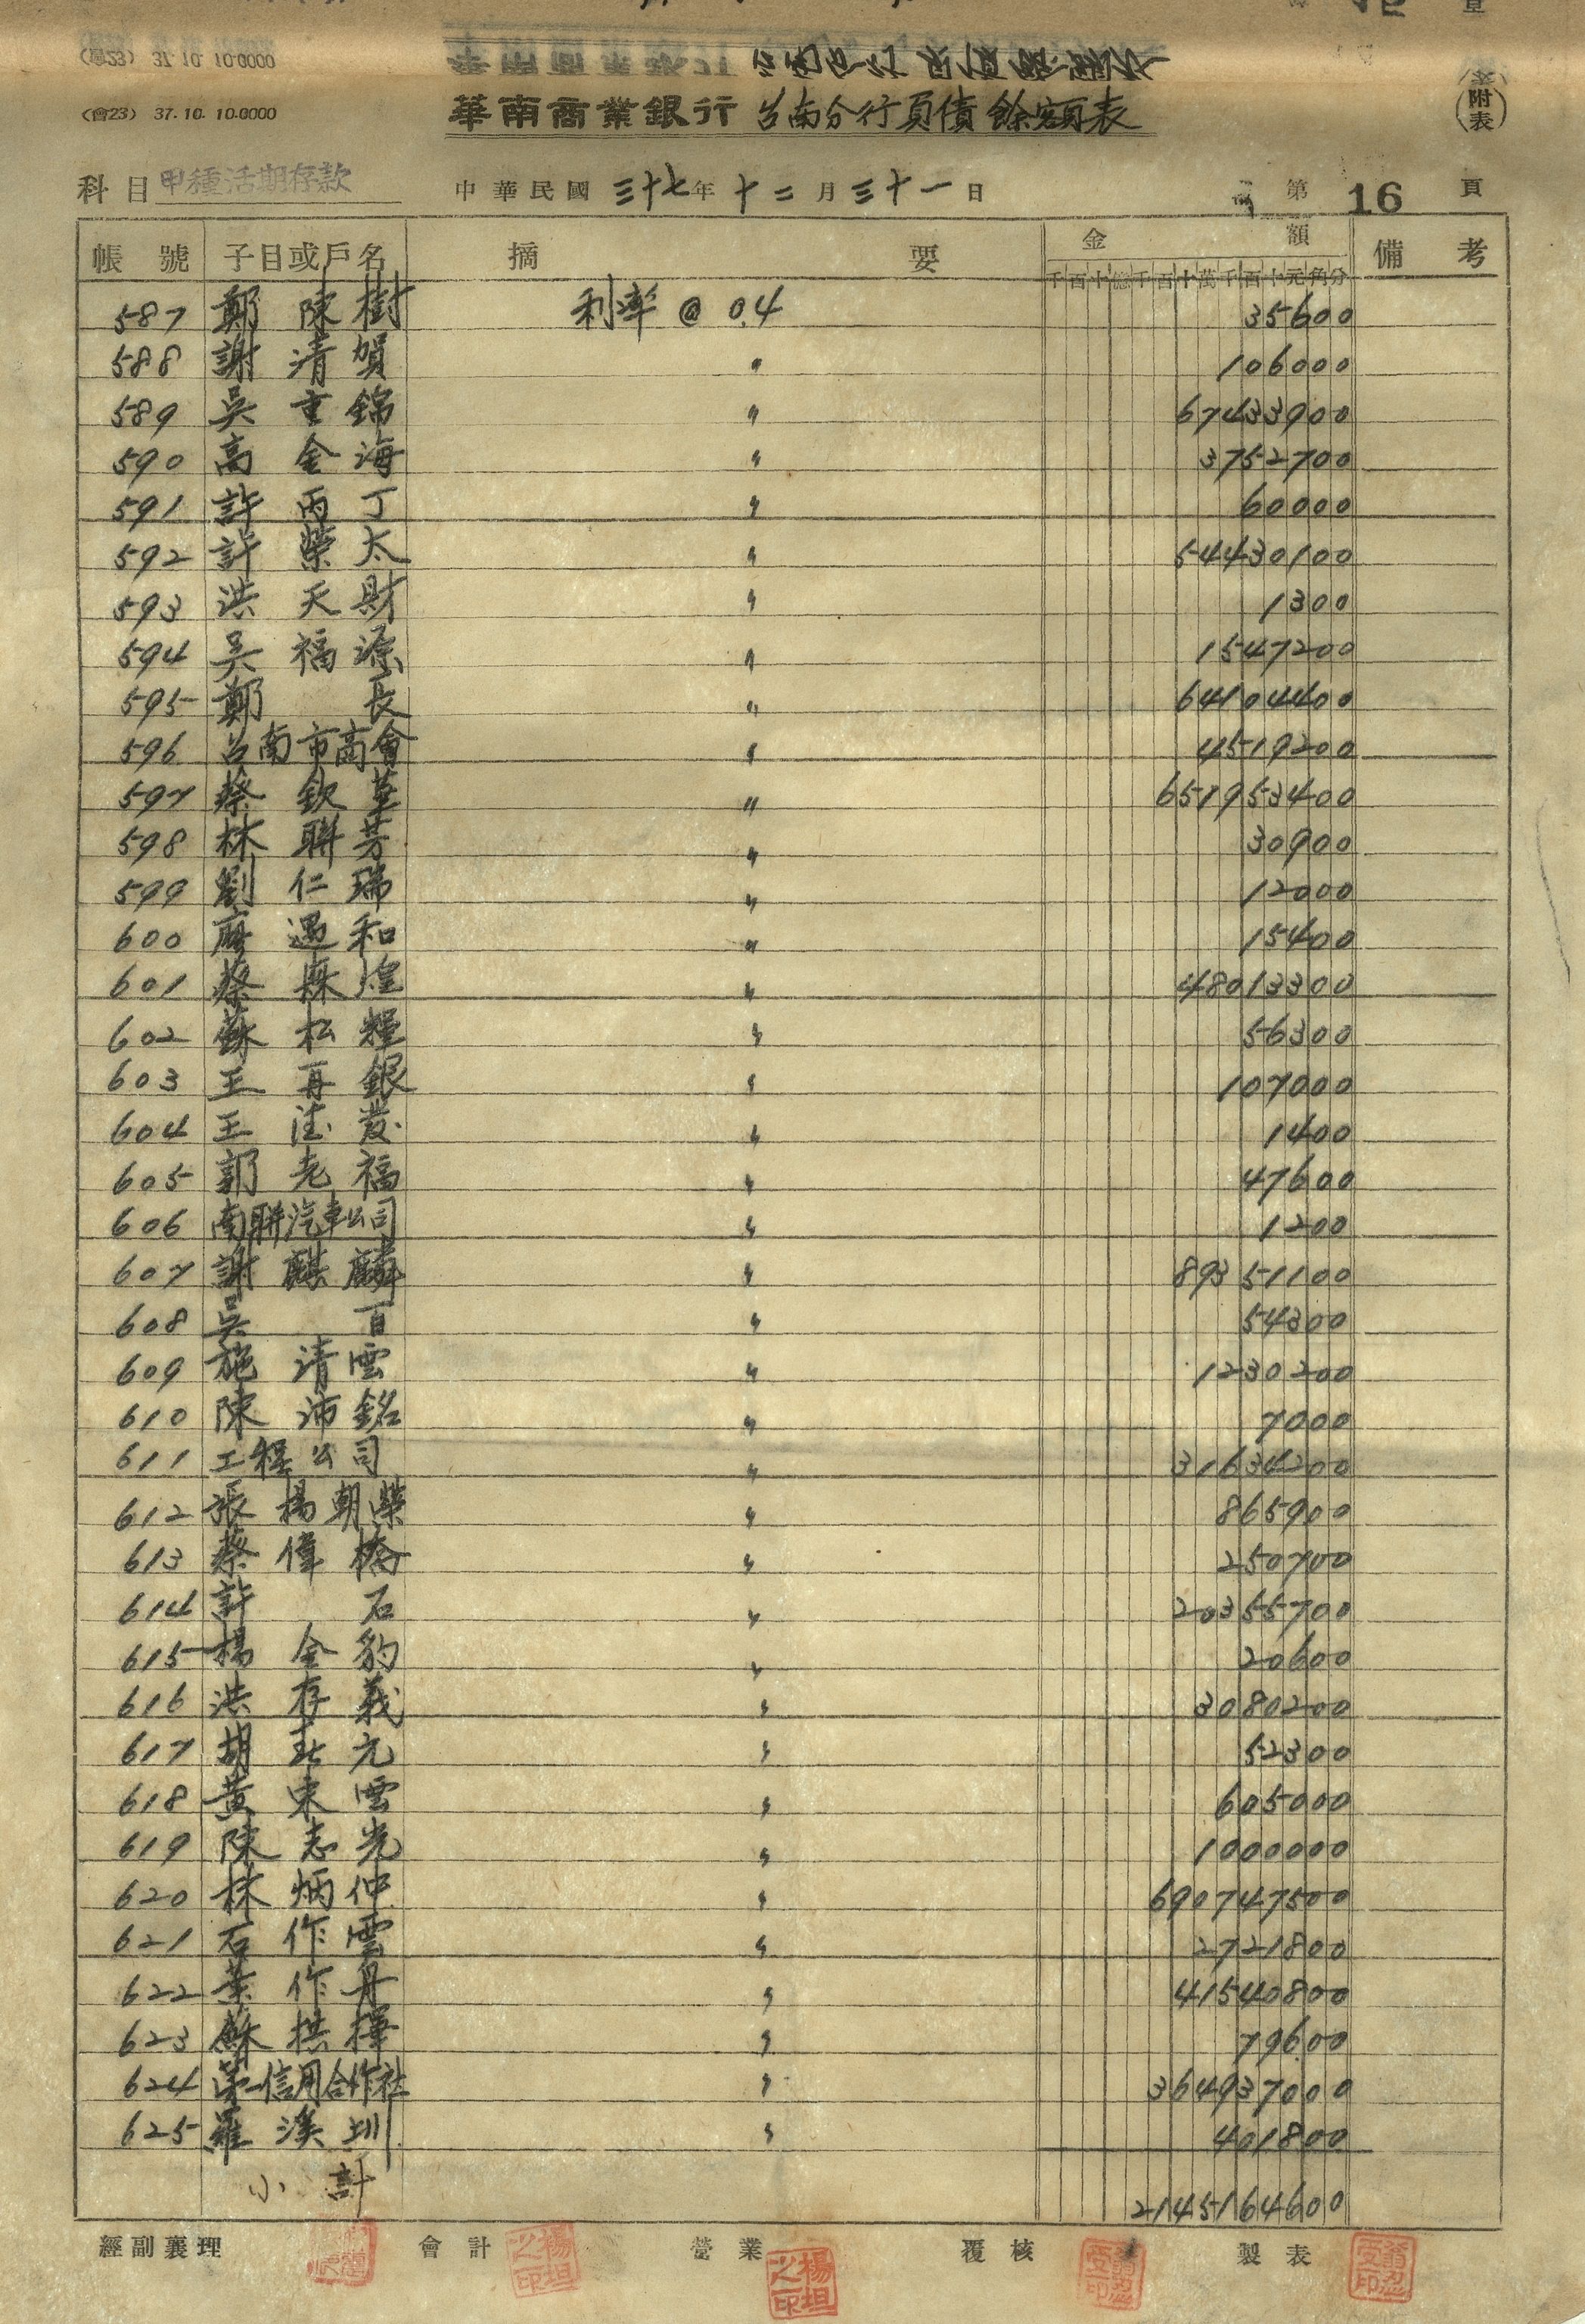 (會23) 37.10.10.0000
華南商業銀行 台南分行負債餘額表
(附表)
科目 甲種活期存款 中華民國 三十七年 十二月 三十一日 第 16 頁
帳號 子目或戶名 摘要 金額 備考
千百十億千百十萬千百十元角分
587 鄭陳樹 利率 @ 0.4 35600
588 謝清賀 〃 106000
589 吳重錦 〃 67433900
590 高金海 〃 3752700
591 許丙丁 〃 60000
592 許榮太 〃 54430100
593 洪天財 〃 1300
594 吳福源 〃 1547200
595 鄭長 〃 64104400
596 台南市商會 〃 4519200
597 蔡欽 〃 651953400
598 林聯芳 〃 30900
599 劉仁瑞 〃 12000
600 遇和 〃 15400
601 蔡煌 〃 48013300
602 蘇松糧 〃 56300
603 王再銀 〃 107000
604 王發 〃 1400
605 郭老福 〃 47600
606 南聯汽車公司 〃 1200
607 謝麒麟 〃 89351100
608 吳百 〃 54300
609 施清雲 〃 1230200
610 陳沛銘 〃 7000
611 工程公司 〃 31634200
612 張楊朝榮 〃 865900
613 蔡偉橋 〃 250700
614 許石 〃 20355700
615 楊金豹 〃 20600
616 洪存義 〃 3080200
617 胡元 〃 52300
618 黃東雲 〃 605000
619 陳志光 〃 1000000
620 林炳仲 〃 690747500
621 石作雲 〃 2721800
622 葉作舟 〃 41540800
623 蘇拱 〃 79600
624 第一信用合作社 〃 364937000
625 羅溪圳 〃 401800
小計 2145164600
經副襄理 會計 營業 覆核 製表
楊坦之印
楊坦之印